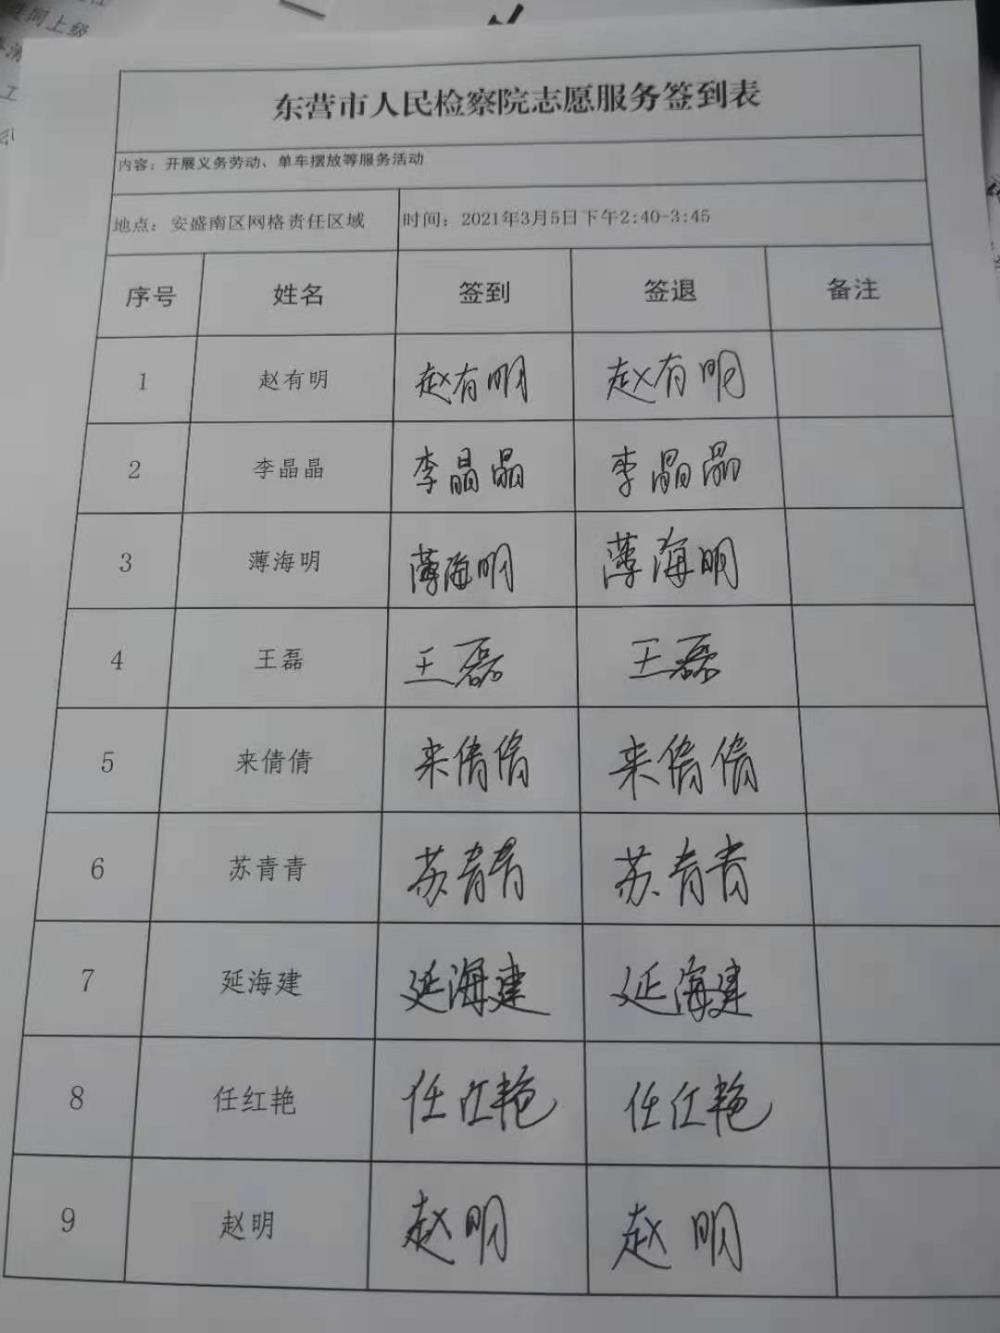 东营市人民检察院志愿服务签到表
内容：开展义务劳动、单车摆放等服务活动
地点：安盛南区网格责任区域 时间：2021年3月5日下午2:40-3:45
序号 姓名 签到 签退 备注
1 赵有明 赵有明 赵有明
2 李晶晶 李晶晶 李晶晶
3 薄海明 薄海明 薄海明
4 王磊 王磊 王磊
5 来倩倩 来倩倩 来倩倩
6 苏青青 苏青青 苏青青
7 延海建 延海建 延海建
8 任红艳 任红艳 任红艳
9 赵明 赵明 赵明